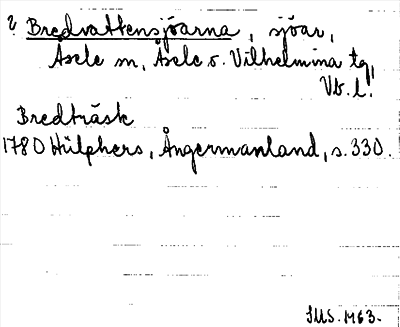 Bredvattensjöarna, sjöar,
Åsele sn, Åsele o. Vilhelmina tg,
Vb. l.
Bredträsk
1780 Hülphers, Ångermanland, s. 330.
IMS. 1963.